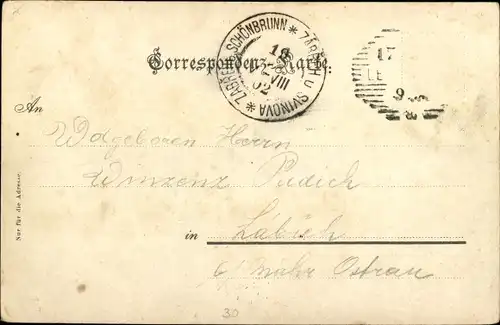 Correspondenz-Karte.
ZÁBŘEH U SVINOVA * ZABŘEH SCHÖNBRUNN *
18
VIII
02
17
LE
9
An
Wolgeboren Herrn
Winzenz Pudich
in Labich
b/ Mähr Ostrau
Nur für die Adresse.
30